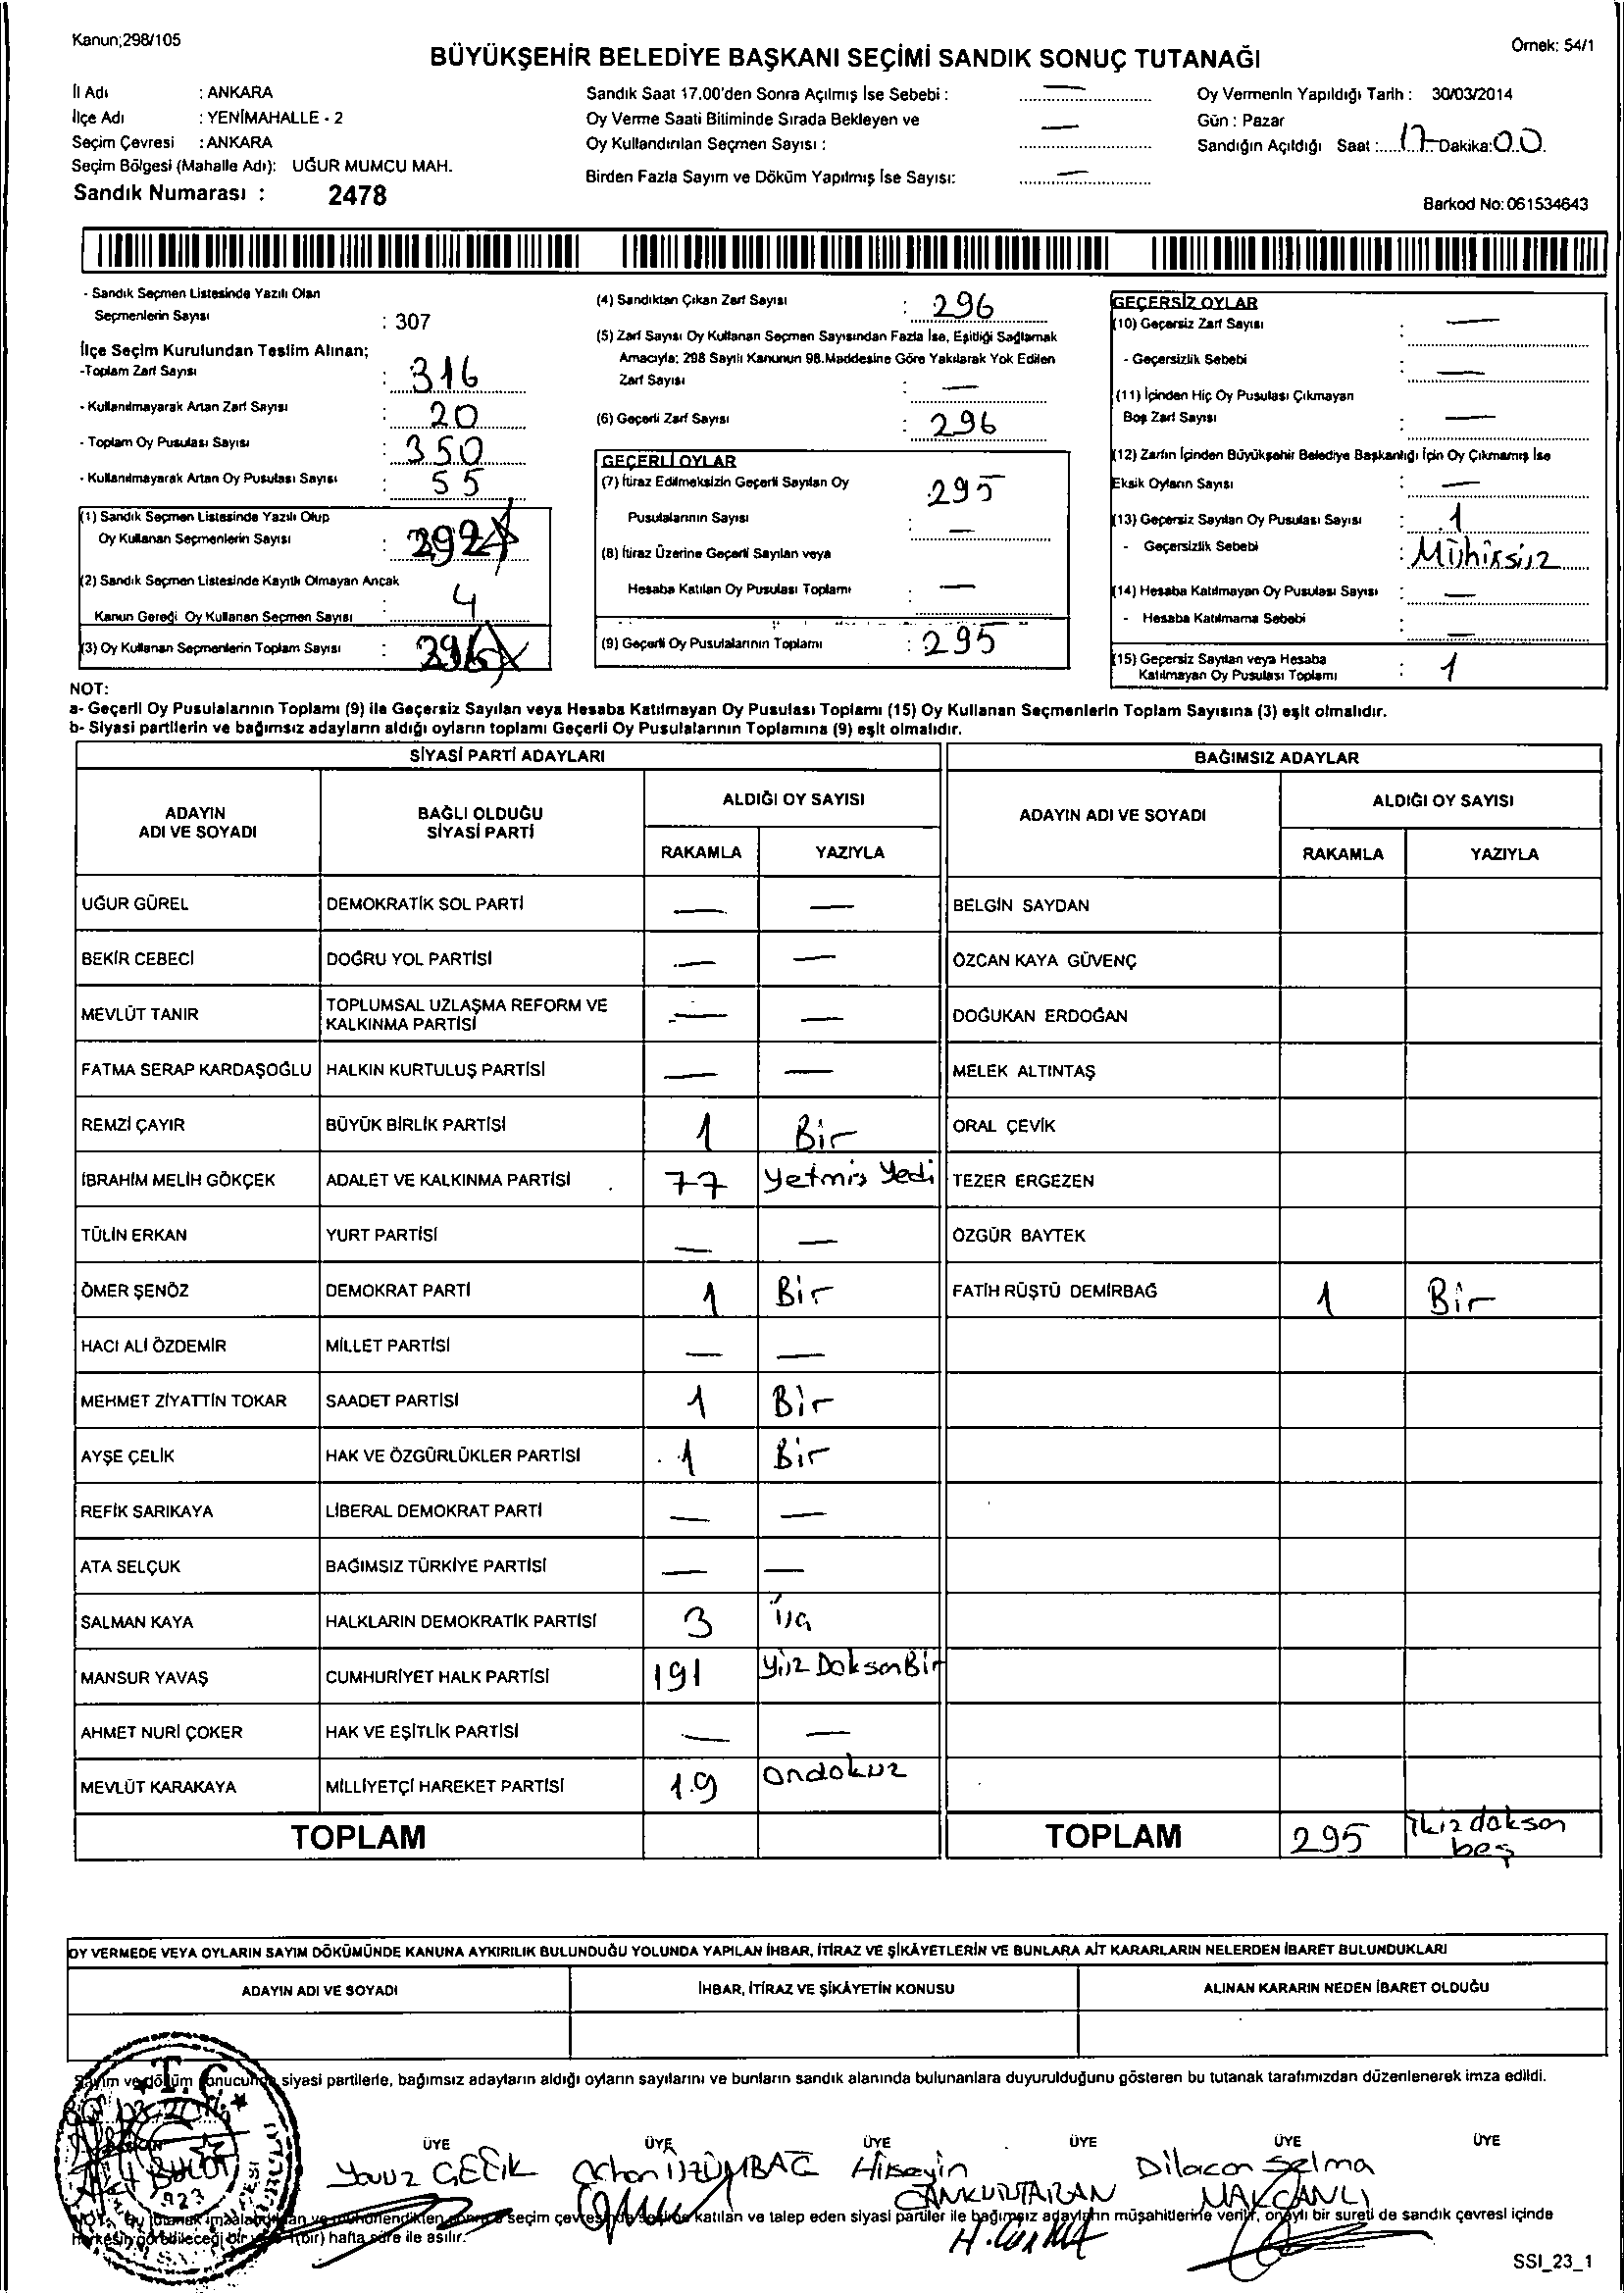 Kanun;298/105
Örnek: 54/1
BÜYÜKŞEHİR BELEDİYE BAŞKANI SEÇİMİ SANDIK SONUÇ TUTANAĞI
İl Adı : ANKARA
İlçe Adı : YENİMAHALLE - 2
Seçim Çevresi : ANKARA
Seçim Bölgesi (Mahalle Adı): UĞUR MUMCU MAH.
Sandık Numarası : 2478
Sandık Saat 17.00'den Sonra Açılmış İse Sebebi : —
Oy Verme Saati Bitiminde Sırada Bekleyen ve
Oy Kullandırılan Seçmen Sayısı : —
Birden Fazla Sayım ve Döküm Yapılmış İse Sayısı: —
Oy Vermenin Yapıldığı Tarih : 30/03/2014
Gün : Pazar
Sandığın Açıldığı Saat : 17 Dakika: 00
Barkod No: 061534643
- Sandık Seçmen Listesinde Yazılı Olan
Seçmenlerin Sayısı : 307
İlçe Seçim Kurulundan Teslim Alınan;
-Toplam Zarf Sayısı : 316
- Kullanılmayarak Artan Zarf Sayısı : 20
- Toplam Oy Pusulası Sayısı : 350
- Kullanılmayarak Artan Oy Pusulası Sayısı : 55
(1) Sandık Seçmen Listesinde Yazılı Olup
Oy Kullanan Seçmenlerin Sayısı : 292
(2) Sandık Seçmen Listesinde Kayıtlı Olmayan Ancak
Kanun Gereği Oy Kullanan Seçmen Sayısı : 4
(3) Oy Kullanan Seçmenlerin Toplam Sayısı : 296
(4) Sandıktan Çıkan Zarf Sayısı : 296
(5) Zarf Sayısı Oy Kullanan Seçmen Sayısından Fazla İse, Eşitliği Sağlamak
Amacıyla; 298 Sayılı Kanunun 98.Maddesine Göre Yakılarak Yok Edilen
Zarf Sayısı : —
(6) Geçerli Zarf Sayısı : 296
GEÇERLİ OYLAR
(7) İtiraz Edilmeksizin Geçerli Sayılan Oy
Pusulalarının Sayısı : 295
—
(8) İtiraz Üzerine Geçerli Sayılan veya
Hesaba Katılan Oy Pusulası Toplamı : —
(9) Geçerli Oy Pusulalarının Toplamı : 295
GEÇERSİZ OYLAR
(10) Geçersiz Zarf Sayısı : —
- Geçersizlik Sebebi : —
(11) İçinden Hiç Oy Pusulası Çıkmayan
Boş Zarf Sayısı : —
(12) Zarfın İçinden Büyükşehir Belediye Başkanlığı İçin Oy Çıkmamış İse
Eksik Oyların Sayısı : —
(13) Geçersiz Sayılan Oy Pusulası Sayısı : 1
- Geçersizlik Sebebi : Mühirsüz
(14) Hesaba Katılmayan Oy Pusulası Sayısı : —
- Hesaba Katılmama Sebebi : —
(15) Geçersiz Sayılan veya Hesaba
Katılmayan Oy Pusulası Toplamı : 1
NOT:
a- Geçerli Oy Pusulalarının Toplamı (9) ile Geçersiz Sayılan veya Hesaba Katılmayan Oy Pusulası Toplamı (15) Oy Kullanan Seçmenlerin Toplam Sayısına (3) eşit olmalıdır.
b- Siyasi partilerin ve bağımsız adayların aldığı oyların toplamı Geçerli Oy Pusulalarının Toplamına (9) eşit olmalıdır.
SİYASİ PARTİ ADAYLARI BAĞIMSIZ ADAYLAR
ADAYIN ADI VE SOYADI BAĞLI OLDUĞU SİYASİ PARTİ ALDIĞI OY SAYISI ADAYIN ADI VE SOYADI ALDIĞI OY SAYISI
RAKAMLA YAZIYLA RAKAMLA YAZIYLA
UĞUR GÜREL DEMOKRATİK SOL PARTİ — — BELGİN SAYDAN
BEKİR CEBECİ DOĞRU YOL PARTİSİ — — ÖZCAN KAYA GÜVENÇ
MEVLÜT TANIR TOPLUMSAL UZLAŞMA REFORM VE KALKINMA PARTİSİ — — DOĞUKAN ERDOĞAN
FATMA SERAP KARDAŞOĞLU HALKIN KURTULUŞ PARTİSİ — — MELEK ALTINTAŞ
REMZİ ÇAYIR BÜYÜK BİRLİK PARTİSİ 1 Bir ORAL ÇEVİK
İBRAHİM MELİH GÖKÇEK ADALET VE KALKINMA PARTİSİ 77 Yetmiş Yedi TEZER ERGEZEN
TÜLİN ERKAN YURT PARTİSİ — — ÖZGÜR BAYTEK
ÖMER ŞENÖZ DEMOKRAT PARTİ 1 Bir FATİH RÜŞTÜ DEMİRBAĞ 1 Bir
HACI ALİ ÖZDEMİR MİLLET PARTİSİ — —
MEHMET ZİYATTİN TOKAR SAADET PARTİSİ 1 Bir
AYŞE ÇELİK HAK VE ÖZGÜRLÜKLER PARTİSİ 1 Bir
REFİK SARIKAYA LİBERAL DEMOKRAT PARTİ — —
ATA SELÇUK BAĞIMSIZ TÜRKİYE PARTİSİ — —
SALMAN KAYA HALKLARIN DEMOKRATİK PARTİSİ 3 üç
MANSUR YAVAŞ CUMHURİYET HALK PARTİSİ 191 Yüz Doksan Bir
AHMET NURİ ÇOKER HAK VE EŞİTLİK PARTİSİ — —
MEVLÜT KARAKAYA MİLLİYETÇİ HAREKET PARTİSİ 19 Ondokuz
TOPLAM TOPLAM 295 ikiz doksan beş
OY VERMEDE VEYA OYLARIN SAYIM DÖKÜMÜNDE KANUNA AYKIRILIK BULUNDUĞU YOLUNDA YAPILAN İHBAR, İTİRAZ VE ŞİKÂYETLERİN VE BUNLARA AİT KARARLARIN NELERDEN İBARET BULUNDUKLARI
ADAYIN ADI VE SOYADI İHBAR, İTİRAZ VE ŞİKÂYETİN KONUSU ALINAN KARARIN NEDEN İBARET OLDUĞU
Sayım ve döküm sonucunda siyasi partilerle, bağımsız adayların aldığı oyların sayılarını ve bunların sandık alanında bulunanlara duyurulduğunu gösteren bu tutanak tarafımızdan düzenlenerek imza edildi.
T.C.
ÜYE ÜYE ÜYE ÜYE ÜYE ÜYE
Yavuz ÇELİK Orhan ÜZÜMBAĞ Hüseyin Dilacan Selma
CANKURTARAN
NOT: Bu tutanak imzalandıktan ve mühürlendikten sonra seçim çevresinde katılan ve talep eden siyasi partiler ile bağımsız adayların müşahitlerine verilir, onaylı bir sureti de sandık çevresi içinde
Herkesin görebileceği bir yere 1(bir) hafta süre ile asılır.
SSI_23_1